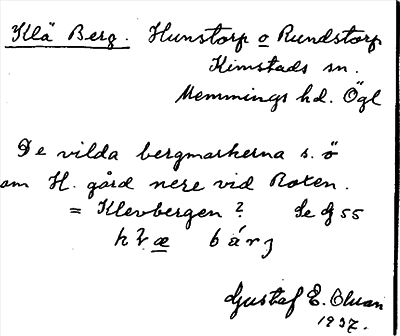 Klä Berg. Hunstorp o Rundstorp
Kimstads sn.
Memmings hd. Ögl
De vilda bergmarkerna s. ö
om H. gård nere vid Roxen.
= Klevbergen? Se dj 55
bárj
Gustaf E. Olsson
1937.